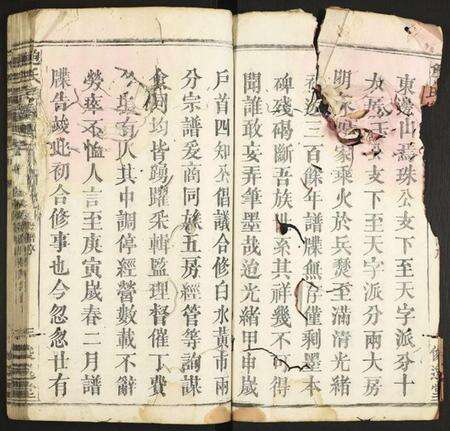 東邊山為珠公支下至天字派分十
支下至天字派分兩大房
明末 家乘火於兵燹至滿清光緒
三百餘年譜牒無存僅剩墨本
碑残碣斷吾族世系其祥幾不可得
聞誰敢妄弄筆墨哉迨光緒甲申歲
戶首四知公倡議合修白水黃市兩
分宗譜爰商同族五房經管等詢謀
僉同均皆踴躍釆輯監理督催丁費
公具有人其中調停經營數載不辭
勞瘁不恤人言至庚寅歲春二月譜
牒告竣此初合修事也今忽忽廿有